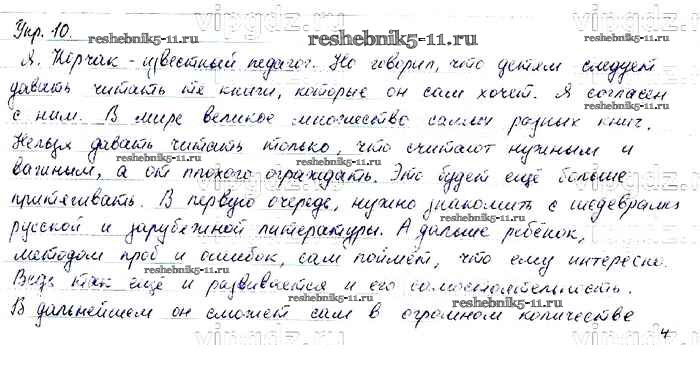 Упр. 10.
reshebnik5-11.ru
Я. Корчак - известный педагог. Но говорил, что детям следует
давать читать те книги, которые он сам хочет. Я согласен
reshebnik5-11.ru
с ним. В мире великое множество самых разных книг.
Нельзя давать читать только, что считают нужным и
reshebnik5-11.ru
важным, а от плохого ограждать. Это будет ещё больше
притягивать. В первую очередь, нужно знакомить с шедеврами
reshebnik5-11.ru
русской и зарубежной литературы. А дальше ребёнок,
методом проб и ошибок, сам поймёт, что ему интересно.
reshebnik5-11.ru
Ведь так ещё и развивается и его самостоятельность.
reshebnik5-11.ru
В дальнейшем он сможет сам в огромном количестве
4